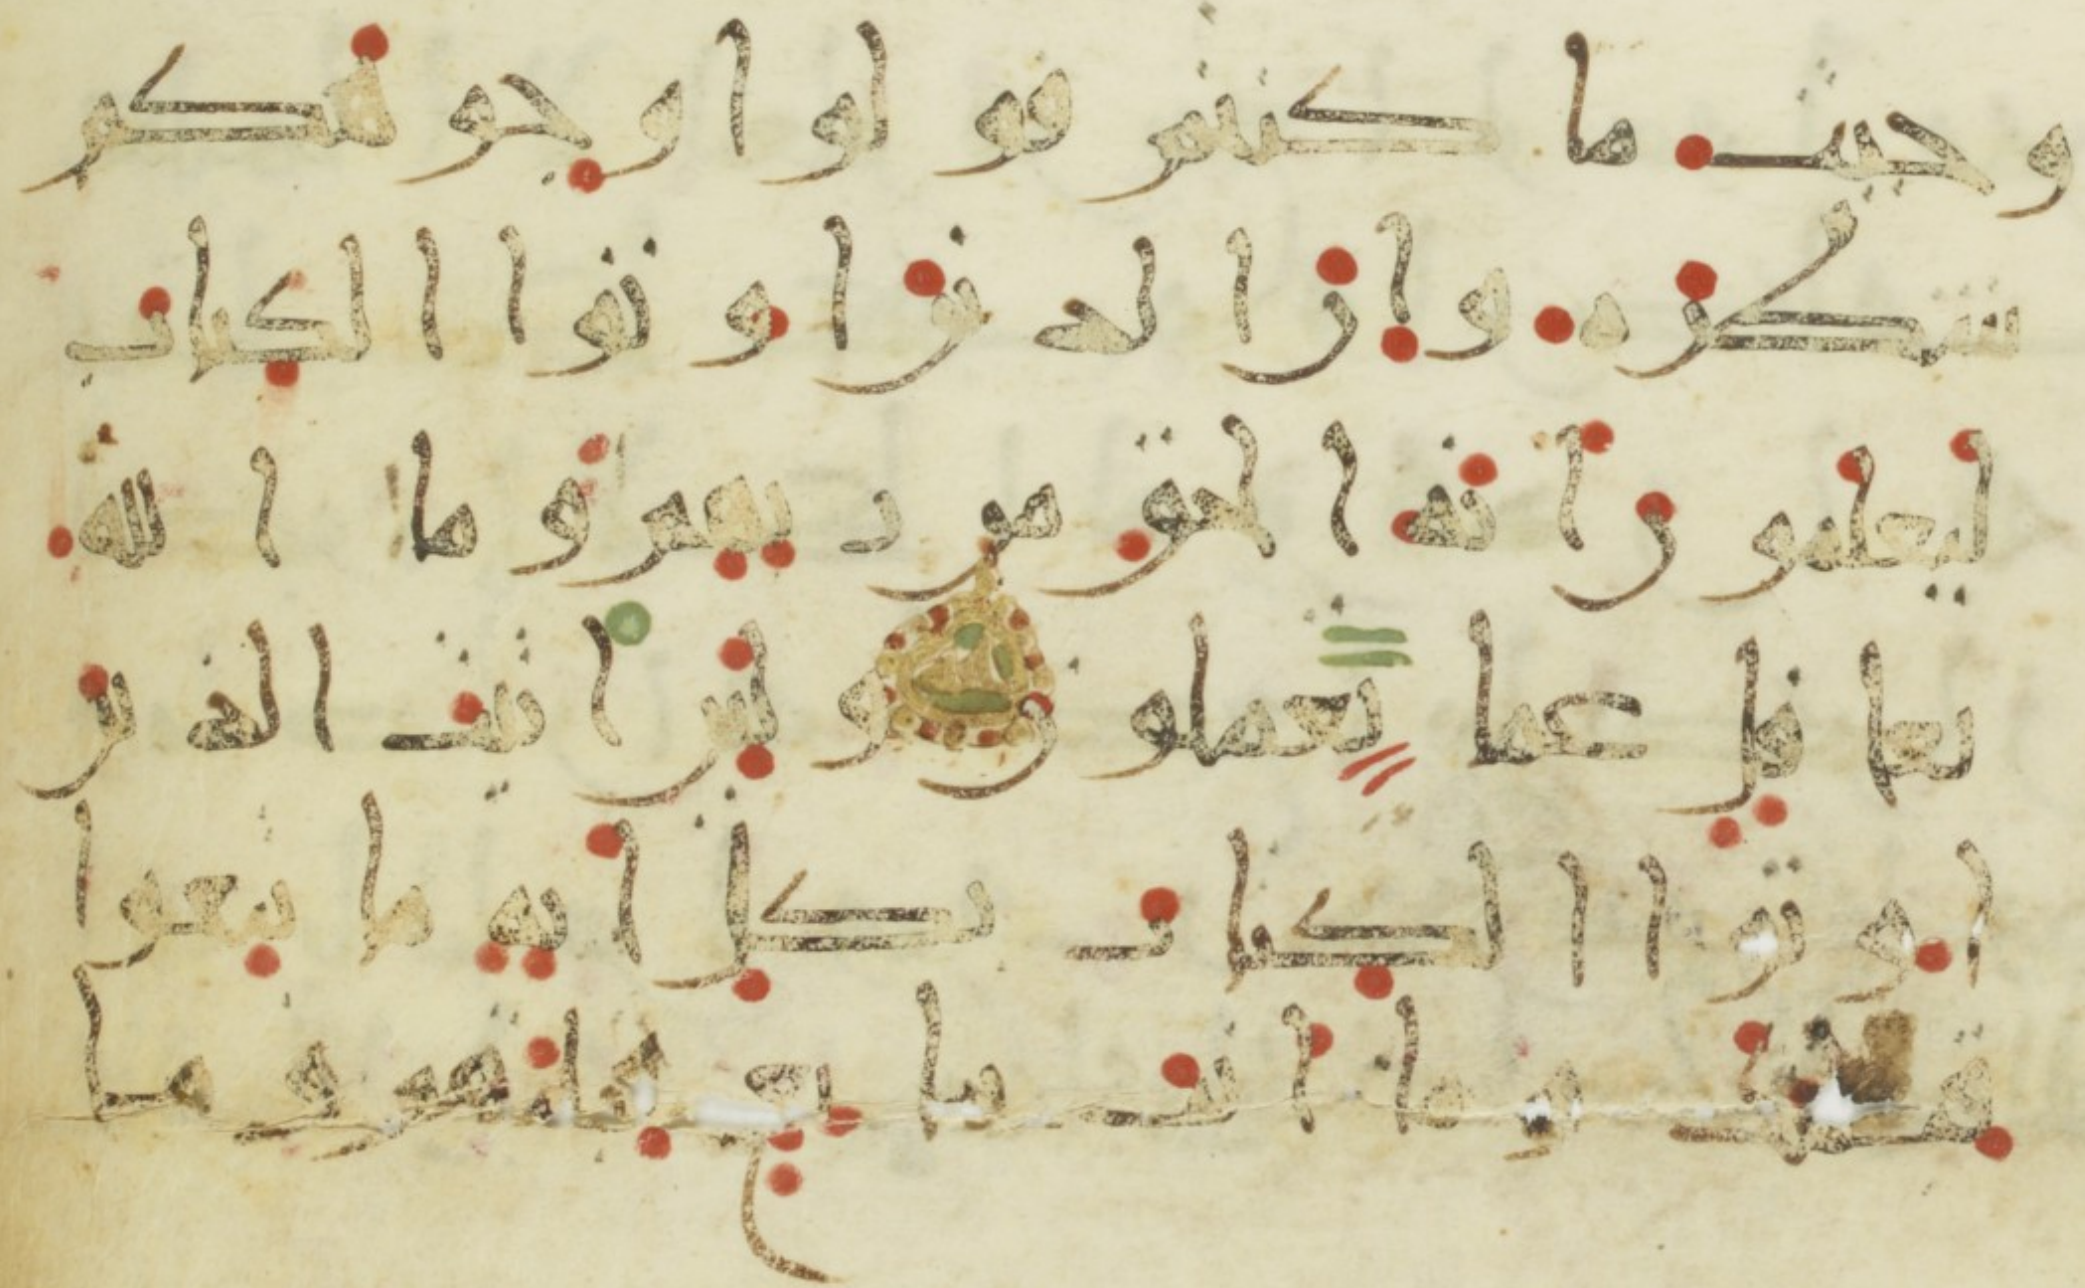 وحيث ما كنتم فولوا وجوهكم
شطره وان الذين اوتوا الكتاب
ليعلمون انه الحق من ربهم وما الله
بغافل عما تعملون ولئن اتيت الذين
اوتوا الكتاب بكل اية ما تبعوا
قبلتك وما انت بتابع قبلتهم وما